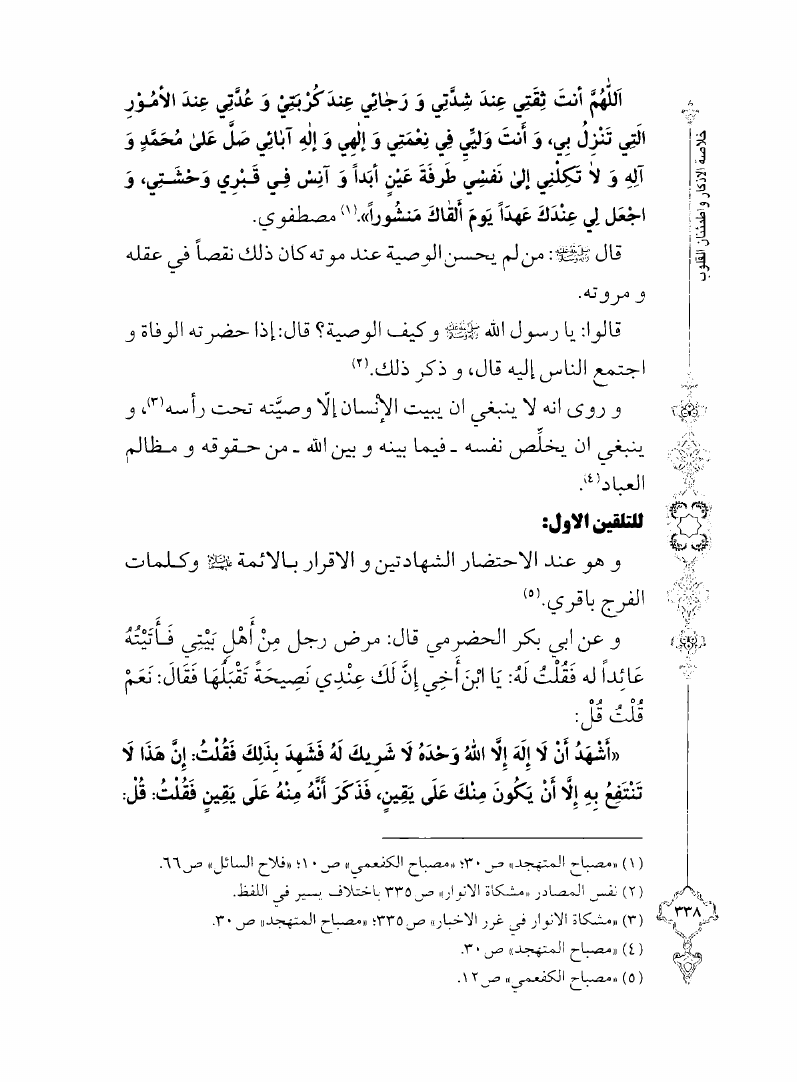 اَللّٰهُمَّ أنتَ ثِقَتِي عِندَ شِدَّتِي وَ رَجٰائِي عِندَ كُرْبَتِيْ وَ عُدَّتِي عِندَ الأمُـوْرِ
الَتِي تَنْزِلُ بِي، وَ أَنتَ وَليِّي فِي نِعْمَتِي وَ إلٰهِي وَ إلٰه آبٰائِي صَلَّ عَلىٰ مُحَمَّدٍ وَ
آلِهِ وَ لاٰ تَكِلنْيِ إلىٰ نَفسْيِ طَرفَةَ عَيْنٍ أبَداً وَ آنِسْ فِـي قَـبْرِي وَحْشَـتِي، وَ
اجْعَل لِي عِنْدَكَ عَهدَاً يَومَ ألقٰاكَ مَنشُوراً».(١) مصطفوي.
قال ﷺ: من لم يحسن الوصية عند موته كان ذلك نقصاً في عقله
و مروته.
قالوا: يا رسول الله ﷺ و كيف الوصية؟ قال: إذا حضرته الوفاة و
اجتمع الناس إليه قال، و ذكر ذلك.(٢)
و روى انه لا ينبغي ان يبيت الإنْسان إلّا وصيَّته تحت رأسه(٣)، و
ينبغي ان يخلِّص نفسه ـ فيما بينه و بين الله ـ من حـقوقه و مـظالم
العباد(٤).
للتلقين الاول:
و هو عند الاحتضار الشهادتين و الاقرار بـالائمة وكـلمات
الفرج باقري.(٥)
و عن ابي بكر الحضرمي قال: مرض رجل مِنْ أَهْلِ بَيْتِي فَـأَتَيْتُهُ
عَائِداً له فَقُلْتُ لَهُ: يَا ابْنَ أَخِي إِنَّ لَكَ عِنْدِي نَصِيحَةً تَقْبَلُهَا فَقَالَ: نَعَمْ
قُلْتُ قُلْ:
«أَشْهَدُ أَنْ لَا إِلَهَ إِلَّا اللهُ وَحْدَهُ لَا شَرِيكَ لَهُ فَشَهِدَ بِذَلِكَ فَقُلْتُ: إِنَّ هَذَا لَا
تَنْتَفِعُ بِهِ إِلَّا أَنْ يَكُونَ مِنْكَ عَلَى يَقِينٍ، فَذَكَرَ أَنَّهُ مِنْهُ عَلَى يَقِينٍ فَقُلْتُ: قُلْ:
(١) «مصباح المتهجد» ص٣٠؛ «مصباح الكفعمي» ص١٠؛ «فلاح السائل» ص٦٦.
(٢) نفس المصادر «مشكاة الانوار» ص٣٣٥ باختلاف يسير في اللفظ.
(٣) «مشكاة الانوار في غرر الاخبار» ص٣٣٥؛ «مصباح المتهجد» ص٣٠.
(٤) «مصباح المتهجد» ص٣٠.
(٥) «مصباح الكفعمي» ص١٢.
خلاصة الاذكار و اطمئنان القلوب
٣٣٨